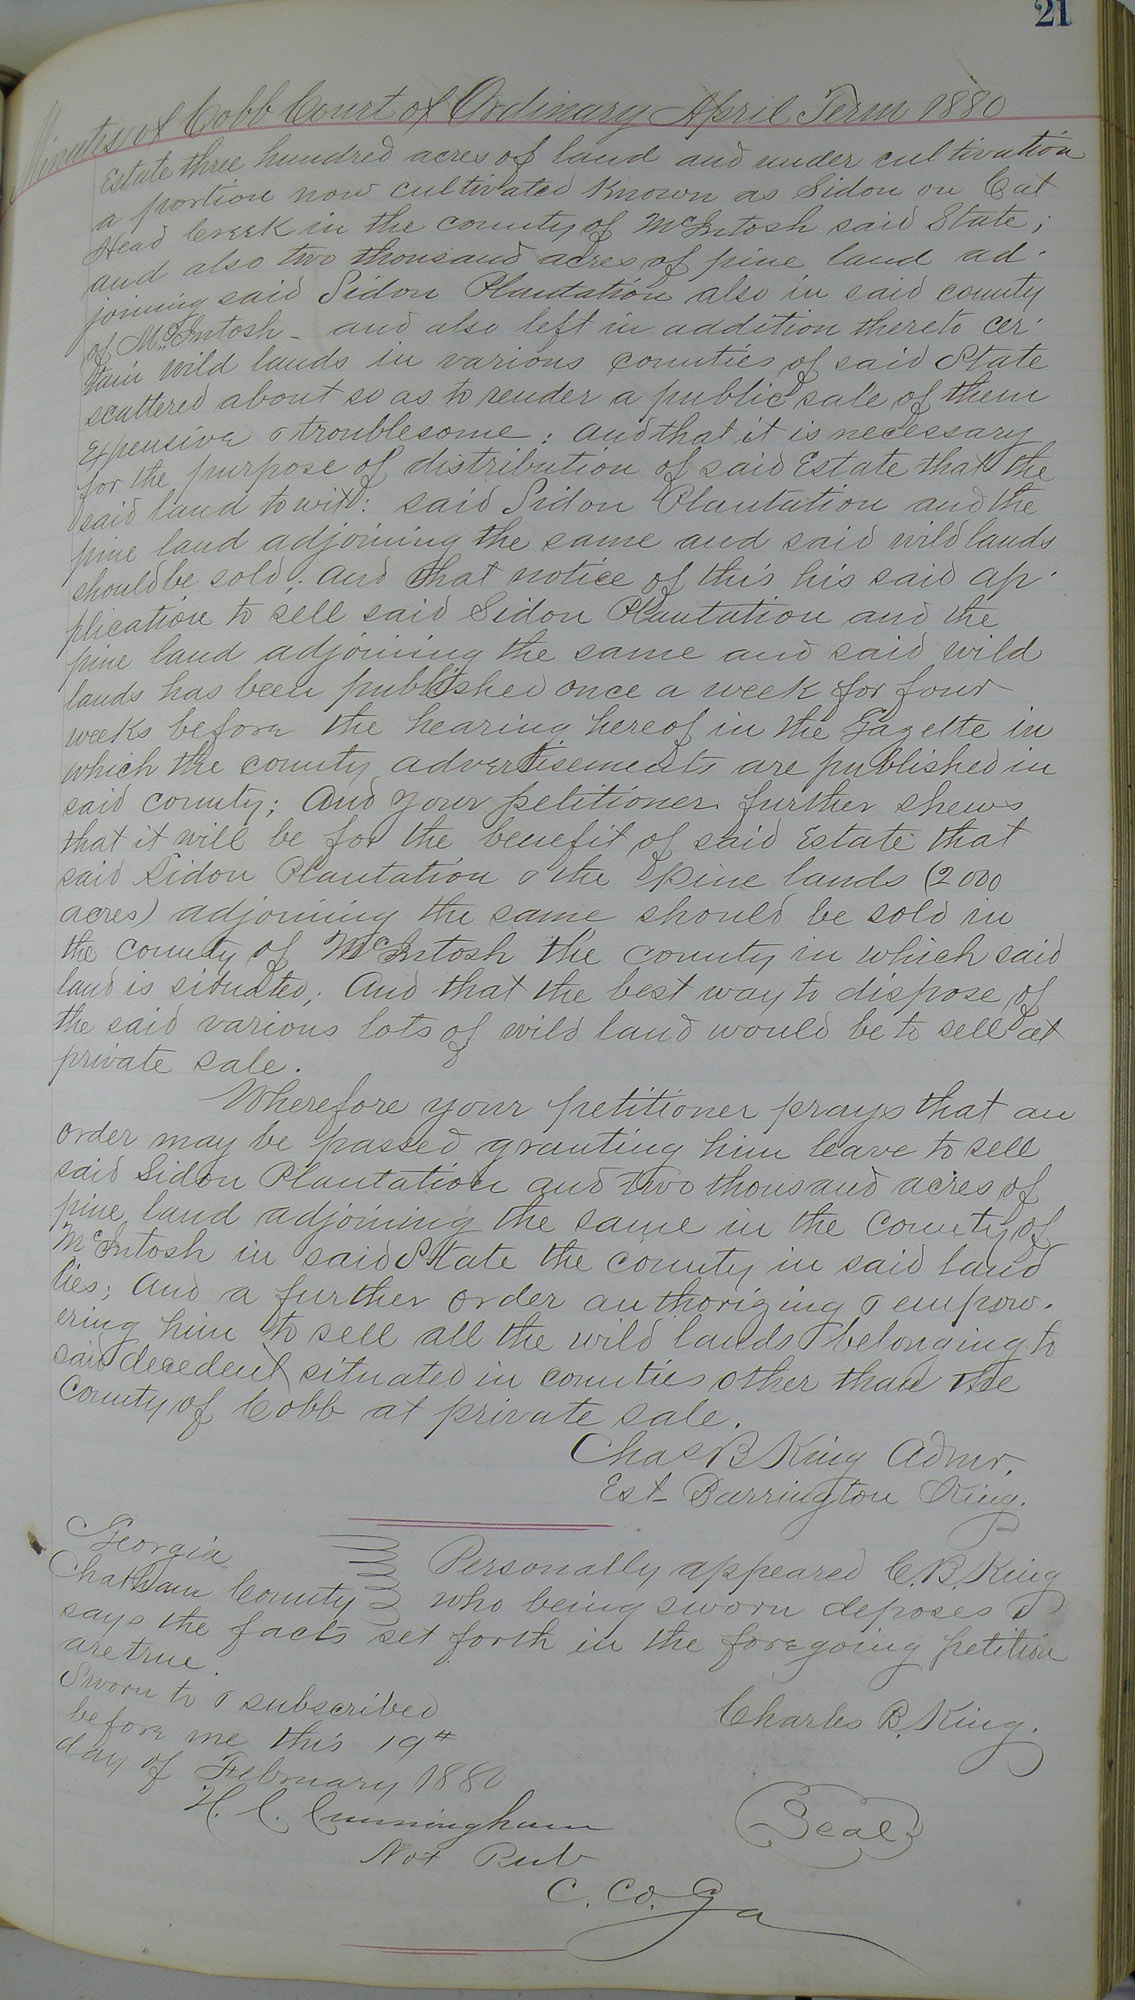 21
Minutes of Cobb Court of Ordinary April Term 1880
Estate three hundred acres of land and under cultivation
a portion now cultivated known as Sidon on Cat
Head Creek in the county of McIntosh said State;
and also two thousand acres of pine land ad-
joining said Sidon Plantation also in said county
of McIntosh - and also left in addition thereto cer-
tain wild lands in various counties of said State
scattered about so as to render a public sale of them
expensive & troublesome: and that it is necessary
for the purpose of distribution of said Estate that the
said land to wit: said Sidon Plantation and the
pine land adjoining the same and said wild lands
should be sold; and that notice of this his said ap-
plication to sell said Sidon Plantation and the
pine land adjoining the same and said wild
lands has been published once a week for four
weeks before the hearing hereof in the Gazette in
which the county advertisements are published in
said county; and your petitioner further shews
that it will be for the benefit of said Estate that
said Sidon Plantation & the pine lands (2000
acres) adjoining the same should be sold in
the county of McIntosh the county in which said
land is situated; And that the best way to dispose of
the said various lots of wild land would be to sell at
private sale.
Wherefore your petitioner prays that an
order may be passed granting him leave to sell
said Sidon Plantation and two thousand acres of
pine land adjoining the same in the county of
McIntosh in said State the county in said land
lies; And a further order authorizing & empow-
ering him to sell all the wild lands belonging to
said decedent situated in counties other than the
County of Cobb at private sale.
Chas B King Admr.
Est- Barrington King.
Georgia
Chatham County } Personally appeared C. B. King
who being sworn deposes &
says the facts set forth in the foregoing petition
are true.
Sworn to & subscribed
before me this 19th
day of February 1880
Charles B. King.
H. C. Cunningham
Not Pub
C. Co. Ga
Seal